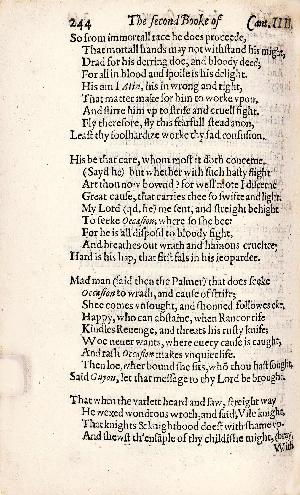 244 The second Booke of Cant. IIII.
So from immortall race he does proceede,
That mortall hands may not withstand his might,
Drad for his derring doe, and bloody deed;
For all in blood and spoile is his delight.
His am I Atin, his in wrong and right,
That matter make for him to worke vpon,
And stirre him vp to strife and cruell fight.
Fly therefore, fly this fearfull stead anon,
Least thy foolhardize worke thy sad confusion.
His be that care, whom most it doth concerne,
(Sayd he) but whether with such hasty flight
Art thou now bownd? for well mote I discerne
Great cause, that carries thee so swifte and light.
My Lord (qd. he) me sent, and streight behight
To seeke Occasion, where so she bee:
For he is all disposd to bloody fight,
And breathes out wrath and hainous crueltee;
Hard is his hap, that first fals in his ieopardee.
Mad man (said then the Palmer) that does seeke
Occasion to wrath, and cause of strife;
Shee comes vnsought, and shonned followes eke.
Happy, who can abstaine, when Rancor rife
Kindles Reuenge, and threats his rusty knife;
Woe neuer wants, where euery cause is caught,
And rash Occasion makes vnquiet life.
Then loe, wher bound she sits, whō thou hast sought,
Said Guyon, let that message to thy Lord be brought.
That when the varlett heard and saw, streight way
He wexed wondrous wroth, and said, Vile knight,
That knights & knighthood doest with shame vp-
And shewst th'ensaple of thy childishe might, (bray,
With